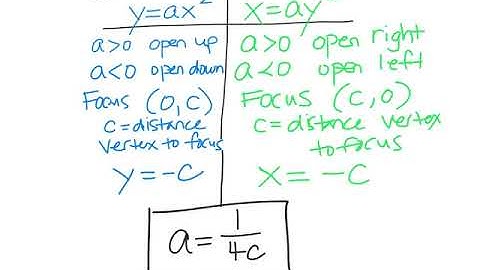 y=ax²
a>0 open up
a<0 open down
Focus (0,c)
c=distance
vertex to focus
y=-c
x=ay
a>0 open right
a<0 open left
Focus (c,0)
c=distance vertex
to focus
x=-c
a=1/4c